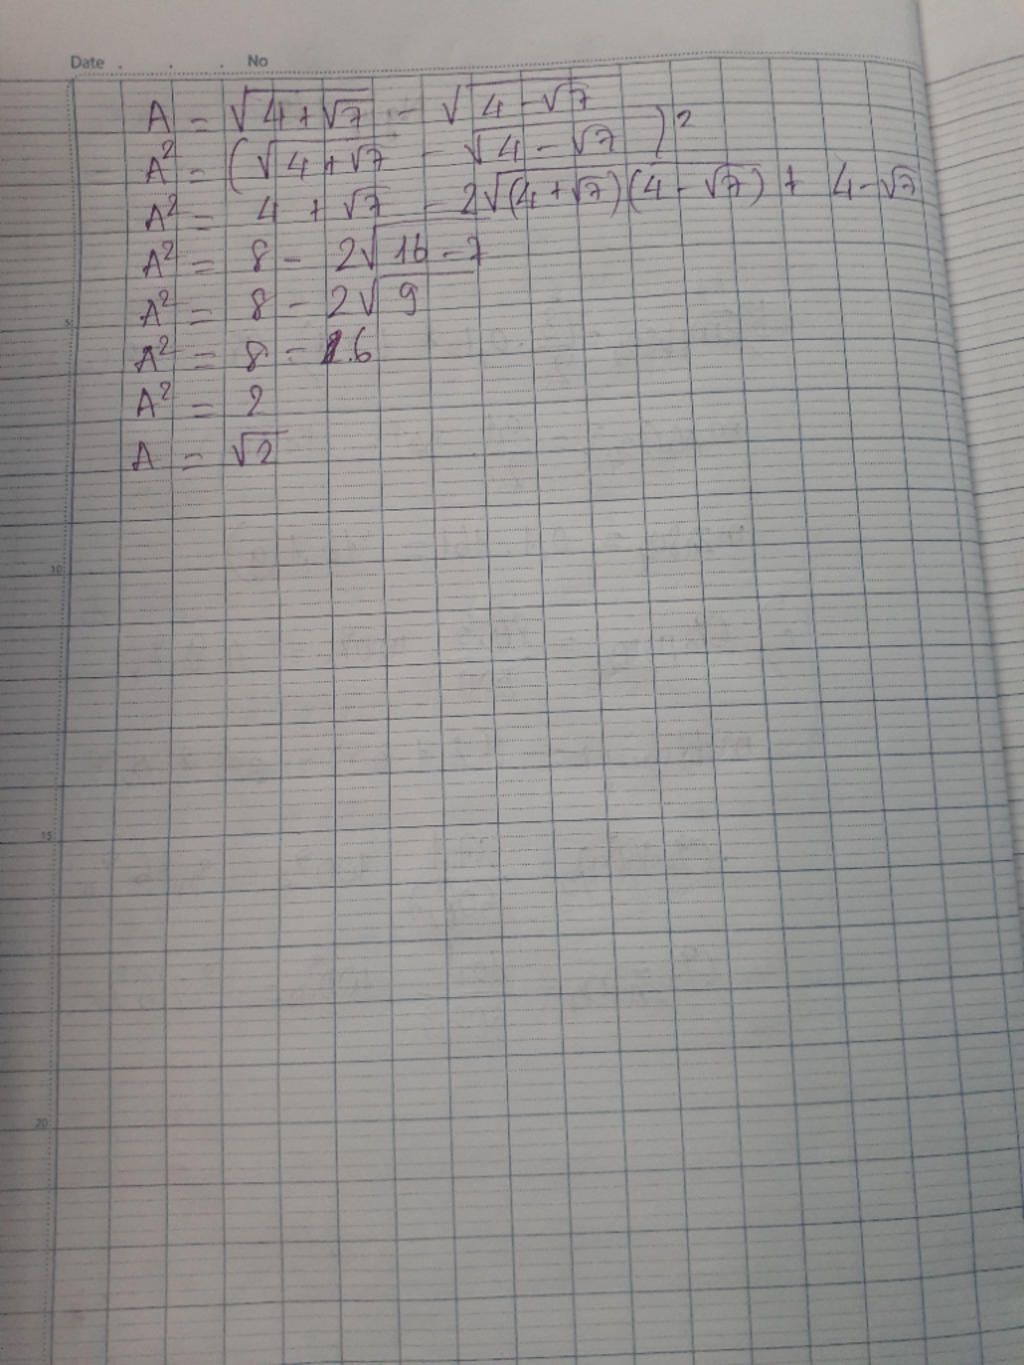 Date . . . No
A = √(4 + √7) - √(4 - √7)
A² = (√(4 + √7) - √(4 - √7))²
A² = 4 + √7 - 2√(4 + √7)(4 - √7) + 4 - √7
A² = 8 - 2√(16 - 7)
A² = 8 - 2√9
5
A² = 8 - 6
A² = 2
A = √2
10
15
20